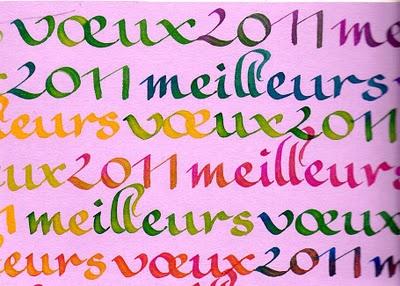 vœux 2011 me
2011 meilleurs v
leurs vœux 2011
ux 2011 meilleurs
1 meilleurs vœux
eurs vœux 2011 m